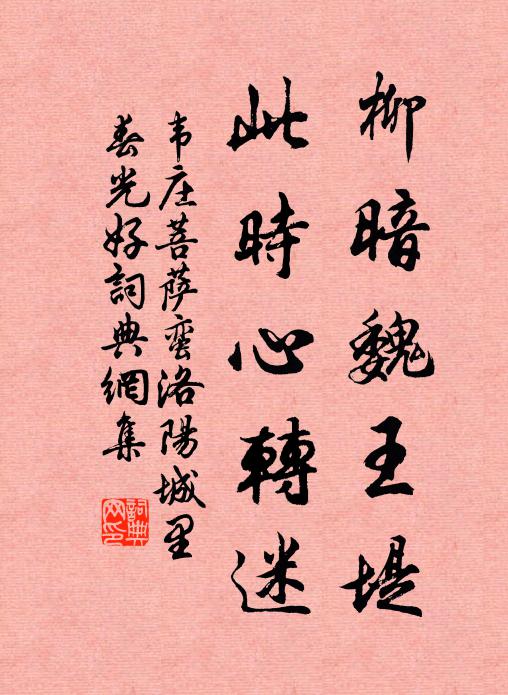 柳暗魏王堤
此時心轉迷
韦庄菩萨蛮洛陽城里
春光好詞典網集
詞典网印